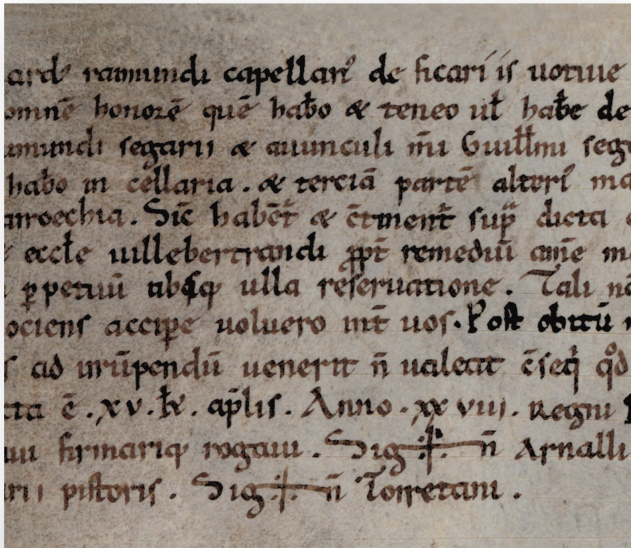 ard̄ ramundi capellarī de ficariis uotiue
omnē honorē quē habo & teneo ul̄ habe de
amundi segarii & auunculi m̄i Guill̄mi seg
habo in cellaria. & terciā partē alterī ma
arroechia. Sic̄ habēt & c̄tinent̄ sup̄ dicta
eccl̄e uillebertrandi ꝓpt̄ remediū anīe m
ꝑpetuū absq; ulla reseruatione. Tali
ociens accipe uoluero int̄ uos. Post obitū
ad irrūpendū uenerit n̄ ualeat c̄seq̄ qđ
cta ē. xv. kł. ap̄lis. Anno. xxviii. Regni
ui firmariq; rogaui. Sig✝n̄ Arnalli
rii pistoris. Sig✝n̄ Torretani.